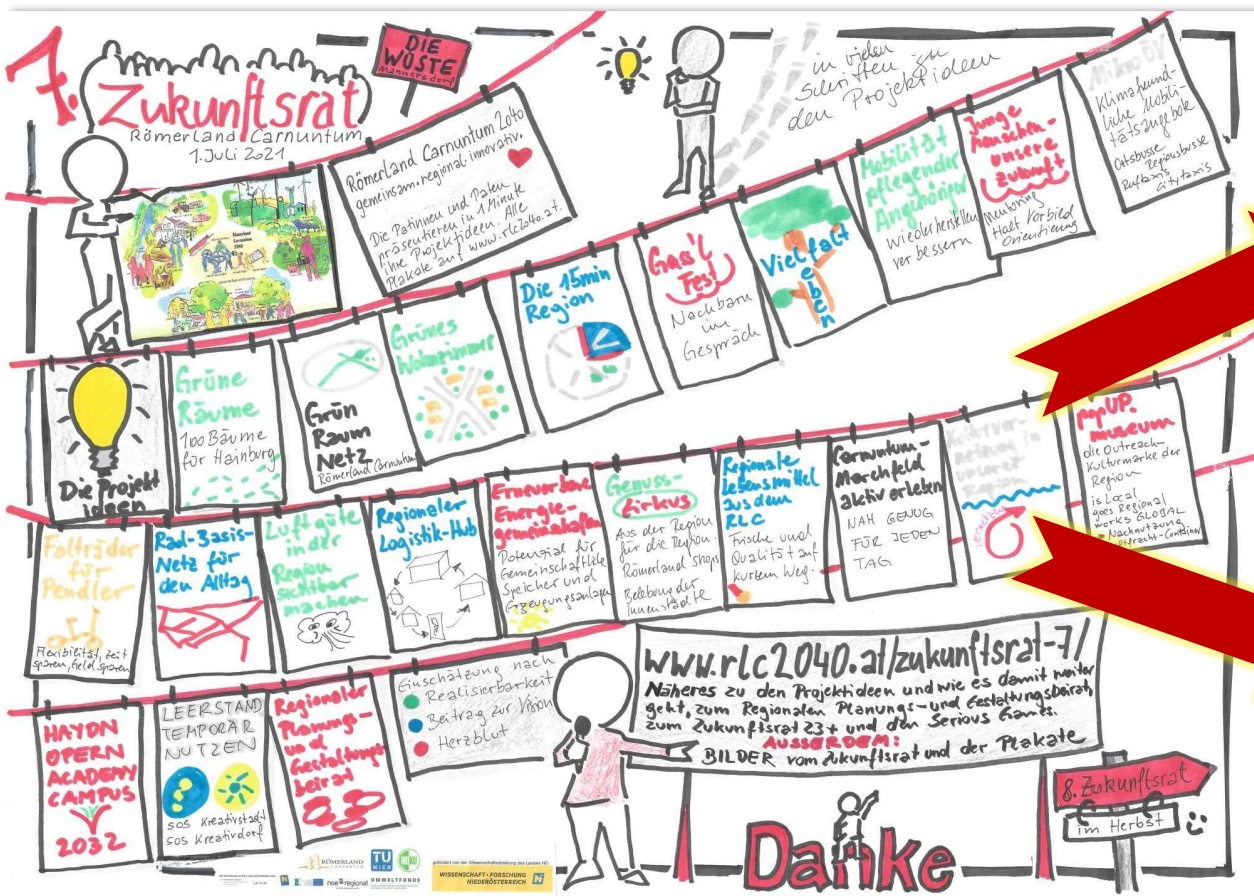 7.
Zukunftsrat
Römerland Carnuntum
1. Juli 2021
DIE
WÜSTE
Mannersdorf
Römerland Carnuntum 2040
gemeinsam.regional.innovativ.
Die Patinnen und Paten
präsentieren in 1 Minute
ihre Projektideen. Alle
Plakate auf www.rlc2040.at.
in vielen
Schritten zu
den Projektideen
Die Projekt
ideen
Grüne
Räume
100 Bäume
für Hainburg
Grün
Raum
Netz
Römerland Carnuntum
Grünes
Wohnzimmer
Die 15min
Region
Gass'l
Fest
Nachbarn
im
Gespräch
Vielfalt
leben
Mobilität
pflegender
Angehöriger
wiederherstellen
verbessern
Junge
Menschen -
unsere
Zukunft
Mentoring
Halt Vorbild
Orientierung
Mikro ÖV
Klimafreund-
liche Mobili-
tätsangebote
Ortsbusse
Regionsbusse
Ruftaxis
Citytaxis
Falträder
für
Pendler
Flexibilität, Zeit
sparen, Geld sparen
Rad-Basis-
Netz für
den Alltag
Luftgüte
in der
Region
sichtbar
machen
Regionaler
Logistik-Hub
Erneuerbare
Energie-
gemeinschaften
Potenzial für
Gemeinschaftliche
Speicher und
Erzeugungsanlagen
Genuss-
Zirkus
Aus der Region
für die Region.
Römerland Shops
Belebung der
Innenstädte
Regionale
Lebensmittel
aus dem
RLC
Frische und
Qualität auf
kurzem Weg.
Carnuntum-
Marchfeld
aktiv erleben
NAH GENUG
FÜR JEDEN
TAG
Kulturver-
netzung in
unserer
Region
popUP.
museum
die Outreach-
Kulturmarke der
Region
is Local
goes Regional
works GLOBAL
Nachnutzung
HAYDN
OPERN
ACADEMY
CAMPUS
2032
LEERSTAND
TEMPORÄR
NUTZEN
SOS Kreativstadt
SOS Kreativdorf
Regionaler
Planungs-
und
Gestaltungs-
beirat
Einschätzung nach
Realisierbarkeit
Beitrag zur Vision
Herzblut
www.rlc2040.at/zukunftsrat-7/
Näheres zu den Projektideen und wie es damit weiter
geht, zum Regionalen Planungs- und Gestaltungsbeirat,
zum Zukunftsrat 23+ und den Serious Games.
AUSSERDEM:
BILDER vom Zukunftsrat und der Plakate
8. Zukunftsrat
im Herbst
Danke
RÖMERLAND
CARNUNTUM
TU
WIEN
noe regional
UMWELTFONDS
gefördert von der Wissenschaftsabteilung des Landes NÖ
WISSENSCHAFT · FORSCHUNG
NIEDERÖSTERREICH